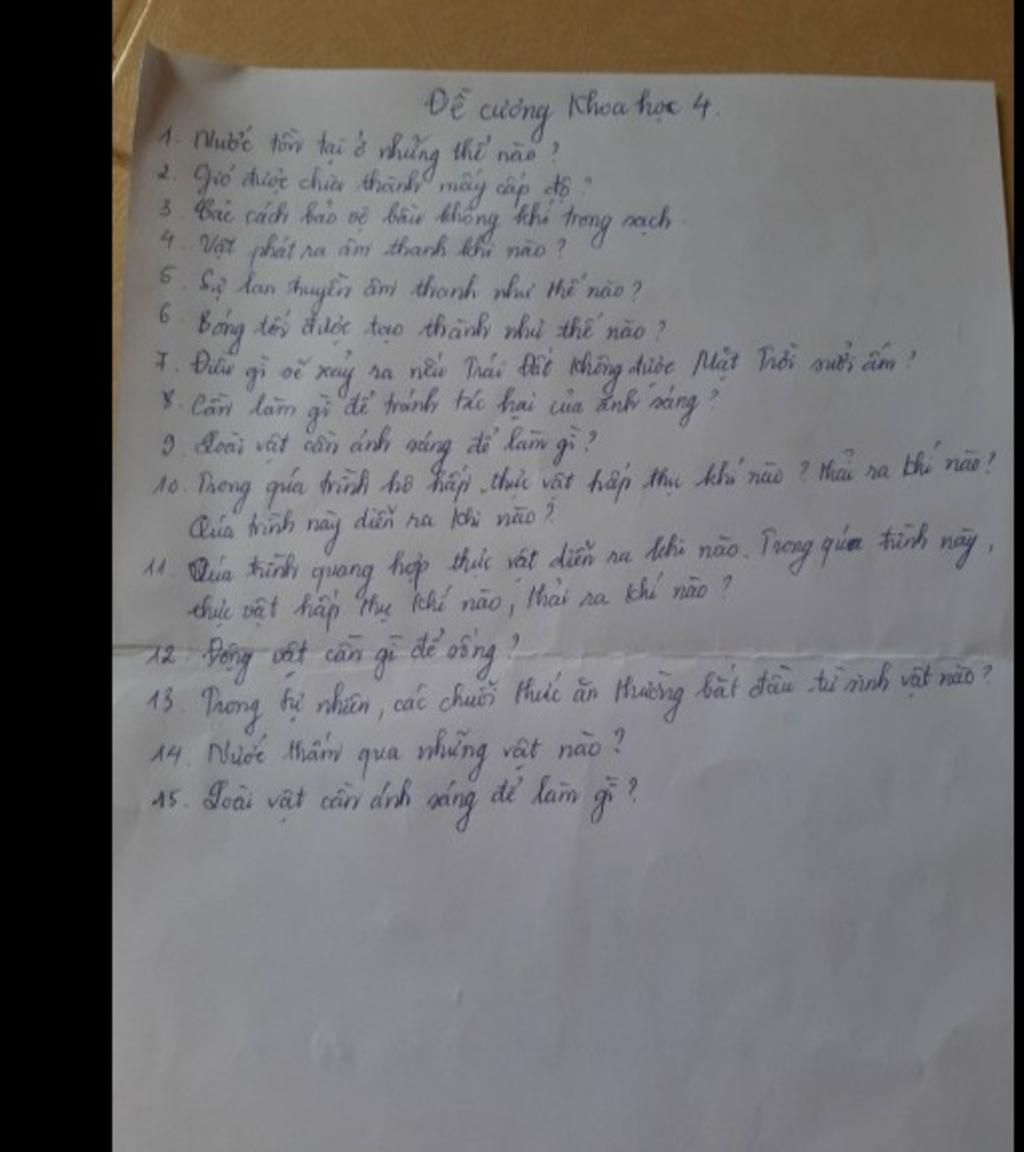 Đề cương Khoa học 4.
1. Nước tồn tại ở những thể nào?
2. Gió được chia thành mấy cấp độ?
3 Các cách bảo vệ bầu không khí trong sạch.
4. Vật phát ra âm thanh khi nào?
5 Sự lan truyền âm thanh như thế nào?
6 Bóng tối được tạo thành như thế nào?
7. Điều gì sẽ xảy ra nếu Trái Đất không được Mặt Trời sưởi ấm?
8. Cần làm gì để tránh tác hại của ánh sáng?
9 Loài vật cần ánh sáng để làm gì?
10. Trong quá trình hô hấp, thực vật hấp thụ khí nào? thải ra khí nào?
Quá trình này diễn ra khi nào?
11. Quá trình quang hợp thực vật diễn ra khi nào. Trong quá trình này,
thực vật hấp thụ khí nào, thải ra khí nào?
12. Động vật cần gì để sống?
13. Trong tự nhiên, các chuỗi thức ăn thường bắt đầu từ sinh vật nào?
14. Nước thấm qua những vật nào?
15. Loài vật cần ánh sáng để làm gì?